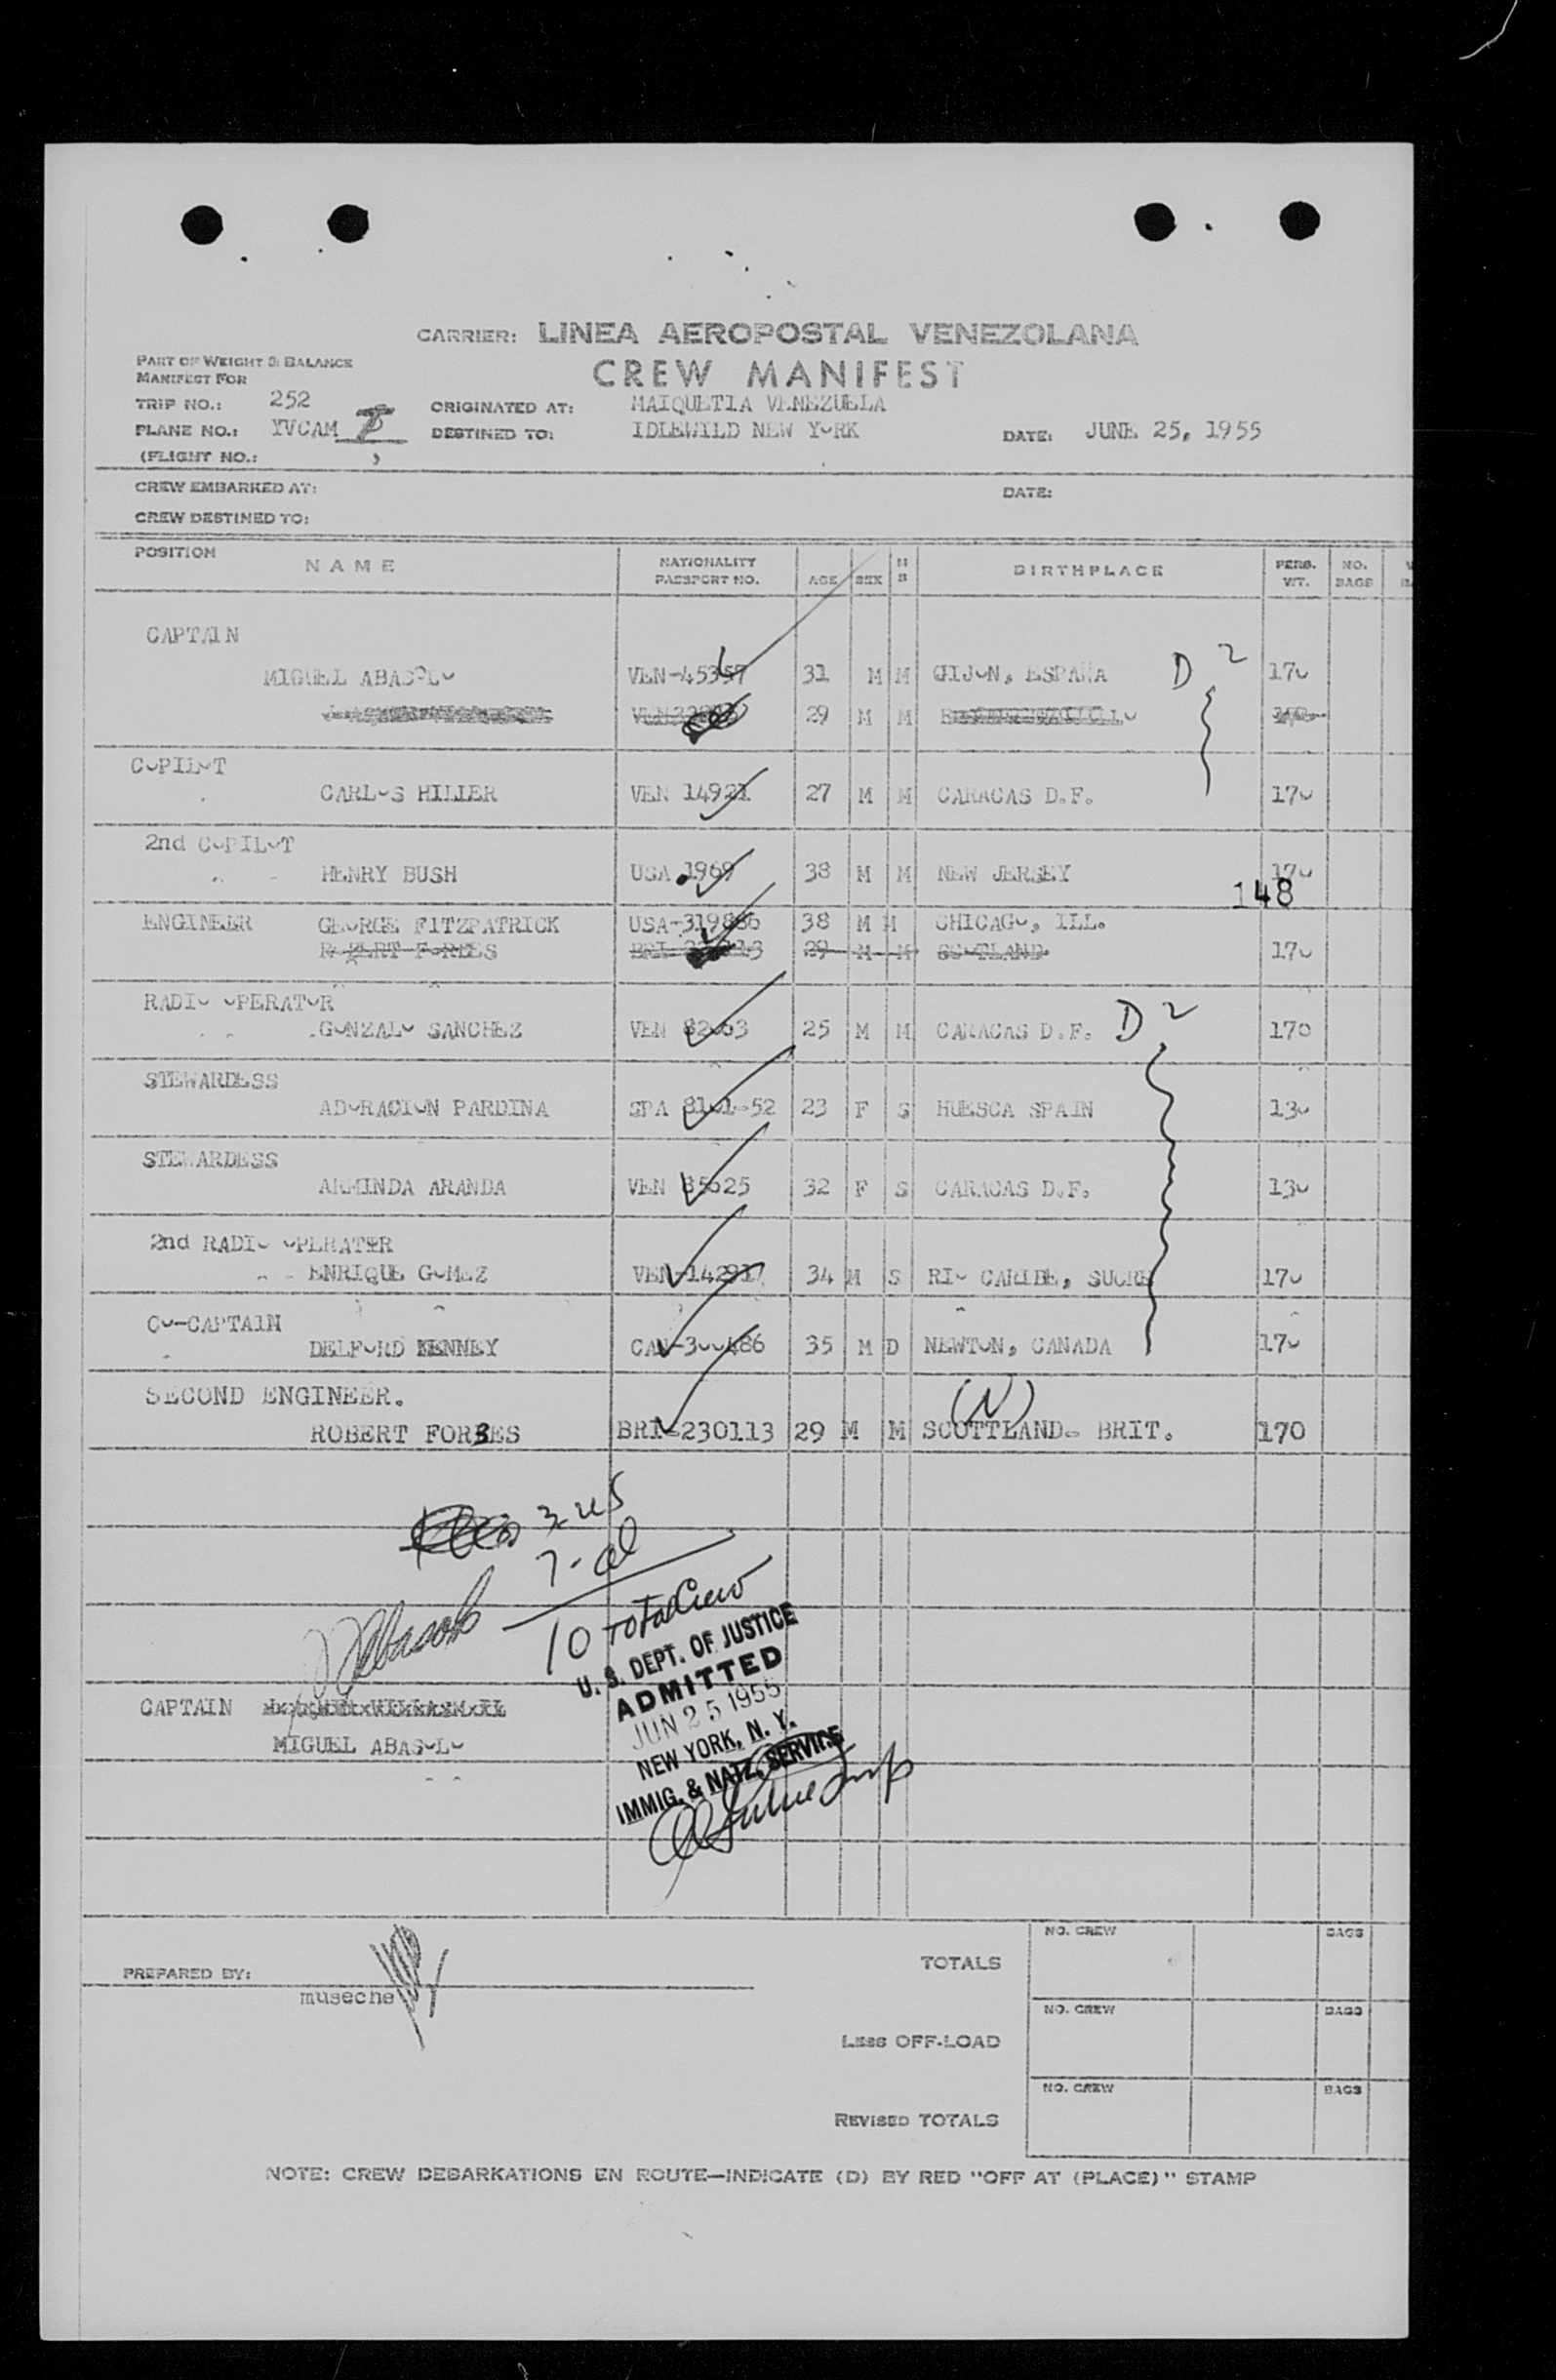 CARRIER: LINEA AEROPOSTAL VENEZOLANA
PART OF WEIGHT & BALANCE
MANIFEST FOR
CREW MANIFEST
TRIP NO.: 252
ORIGINATED AT: MAIQUETIA VENEZUELA
PLANE NO.: YVCAM
DESTINED TO: IDLEWILD NEW YORK
DATE: JUNE 25, 1955
(FLIGHT NO.: )
CREW EMBARKED AT:
DATE:
CREW DESTINED TO:
POSITION NAME NATIONALITY PASSPORT NO. AGE SEX M S BIRTHPLACE PERS. WT. NO. BAGS
CAPTAIN
MIGUEL ABASOLO VEN-45357 31 M M GIJON, ESPAÑA D 2 170
29 M M
COPILOT
CARLOS HILLER VEN 14921 27 M M CARACAS D.F. 170
2nd COPILOT
HENRY BUSH USA 1969 38 M M NEW JERSEY 170
148
ENGINEER GEORGE FITZPATRICK USA-319886 38 M M CHICAGO, ILL.
ROBERT FORBES BRI 29 M M SCOTLAND 170
RADIO OPERATOR
GONZALO SANCHEZ VEN 82063 25 M M CARACAS D.F. D 2 170
STEWARDESS
ADORACION PARDINA SPA 8101-52 23 F S HUESCA SPAIN 130
STEWARDESS
ARMINDA ARANDA VEN 85625 32 F S CARACAS D.F. 130
2nd RADIO OPERATOR
ENRIQUE GOMEZ VEN-142917 34 M S RIO CARIBE, SUCRE 170
CO-CAPTAIN
DELFORD KENNEY CAN-300486 35 M D NEWTON, CANADA 170
SECOND ENGINEER.
(N)
ROBERT FORBES BRI-230113 29 M M SCOTTLAND- BRIT. 170
3-us
7-al
10 Total Crew
U. S. DEPT. OF JUSTICE
ADMITTED
JUN 25 1955
NEW YORK, N. Y.
IMMIG. & NATZ. SERVICE
MAbasolo
CAPTAIN
MIGUEL ABASOLO
PREPARED BY:
museche
TOTALS NO. CREW BAGS
LESS OFF-LOAD NO. CREW BAGS
REVISED TOTALS NO. CREW BAGS
NOTE: CREW DEBARKATIONS EN ROUTE—INDICATE (D) BY RED "OFF AT (PLACE)" STAMP